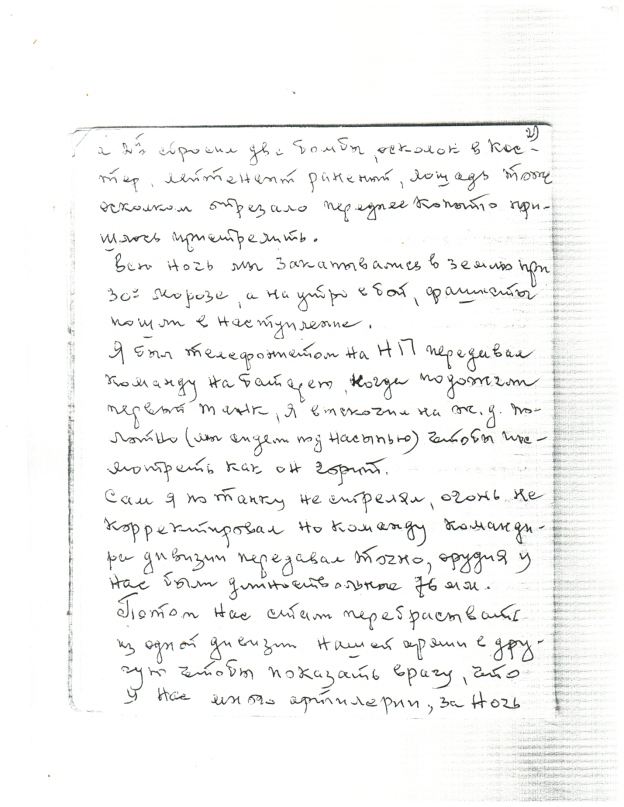 2)
а 2й сбросил две бомбы, осколок в кос-
тер, лейтенант раненый, лошадь тоже
осколком отрезало переднее копыто при-
шлось пристрелить.
Всю ночь мы закапывались в землю при
30° морозе, а на утро в бой, фашисты
пошли в наступление.
Я был телефонистом на НП передавал
команду на батарею, когда подожгли
первый танк, я выскочил на ж.д. по-
лотно (мы сидели под насыпью) чтобы пос-
мотреть как он горит.
Сам я по танку не стрелял, огонь не
корректировал но команду команди-
ра дивизии передавал точно, орудия у
нас были длиноствольные 76 мм.
Потом нас стали перебрасывать
из одной дивизии нашей армии в дру-
гую чтобы показать врагу, что
у нас много артилерии, за ночь